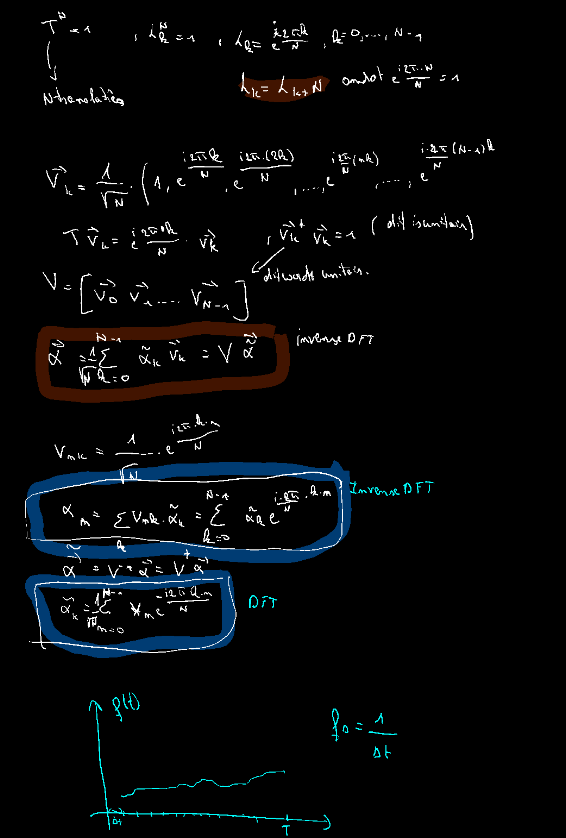 T^N = 1 , λ_k^N = 1 , λ_k = e^{i2πk/N} , k = 0, ..., N-1
N translaties
λ_k = λ_{k+N} omdat e^{i2π·N/N} = 1
\vec{V}_k = 1/√N · (1, e^{i2πk/N}, e^{i2π·(2k)/N}, ..., e^{i2π/N (nk)}, ..., e^{i·2π/N (N-1)k})
T \vec{V}_k = e^{i2πk/N} · \vec{V}_k , \vec{V}_k^† \vec{V}_k = 1 (dit is unitair)
V = [\vec{V}_0 \vec{V}_1 .... \vec{V}_{N-1}] dit wordt unitair.
\vec{α} = 1/√N ∑_{k=0}^{N-1} \tilde{α}_k \vec{V}_k = V \vec{\tilde{α}} inverse DFT
V_{mk} = 1/√N · e^{i2π·k·m/N}
α_m = ∑_k V_{mk} · \tilde{α}_k = ∑_{k=0}^{N-1} \tilde{α}_k e^{i·2π/N · k·m} Inverse DFT
\vec{\tilde{α}} = V^{-1} \vec{α} = V^† \vec{α}
\tilde{α}_k = 1/√N ∑_{m=0}^{N-1} α_m e^{-i2πk·m/N} DFT
f(t)
f_s = 1/Δt
Δt
T